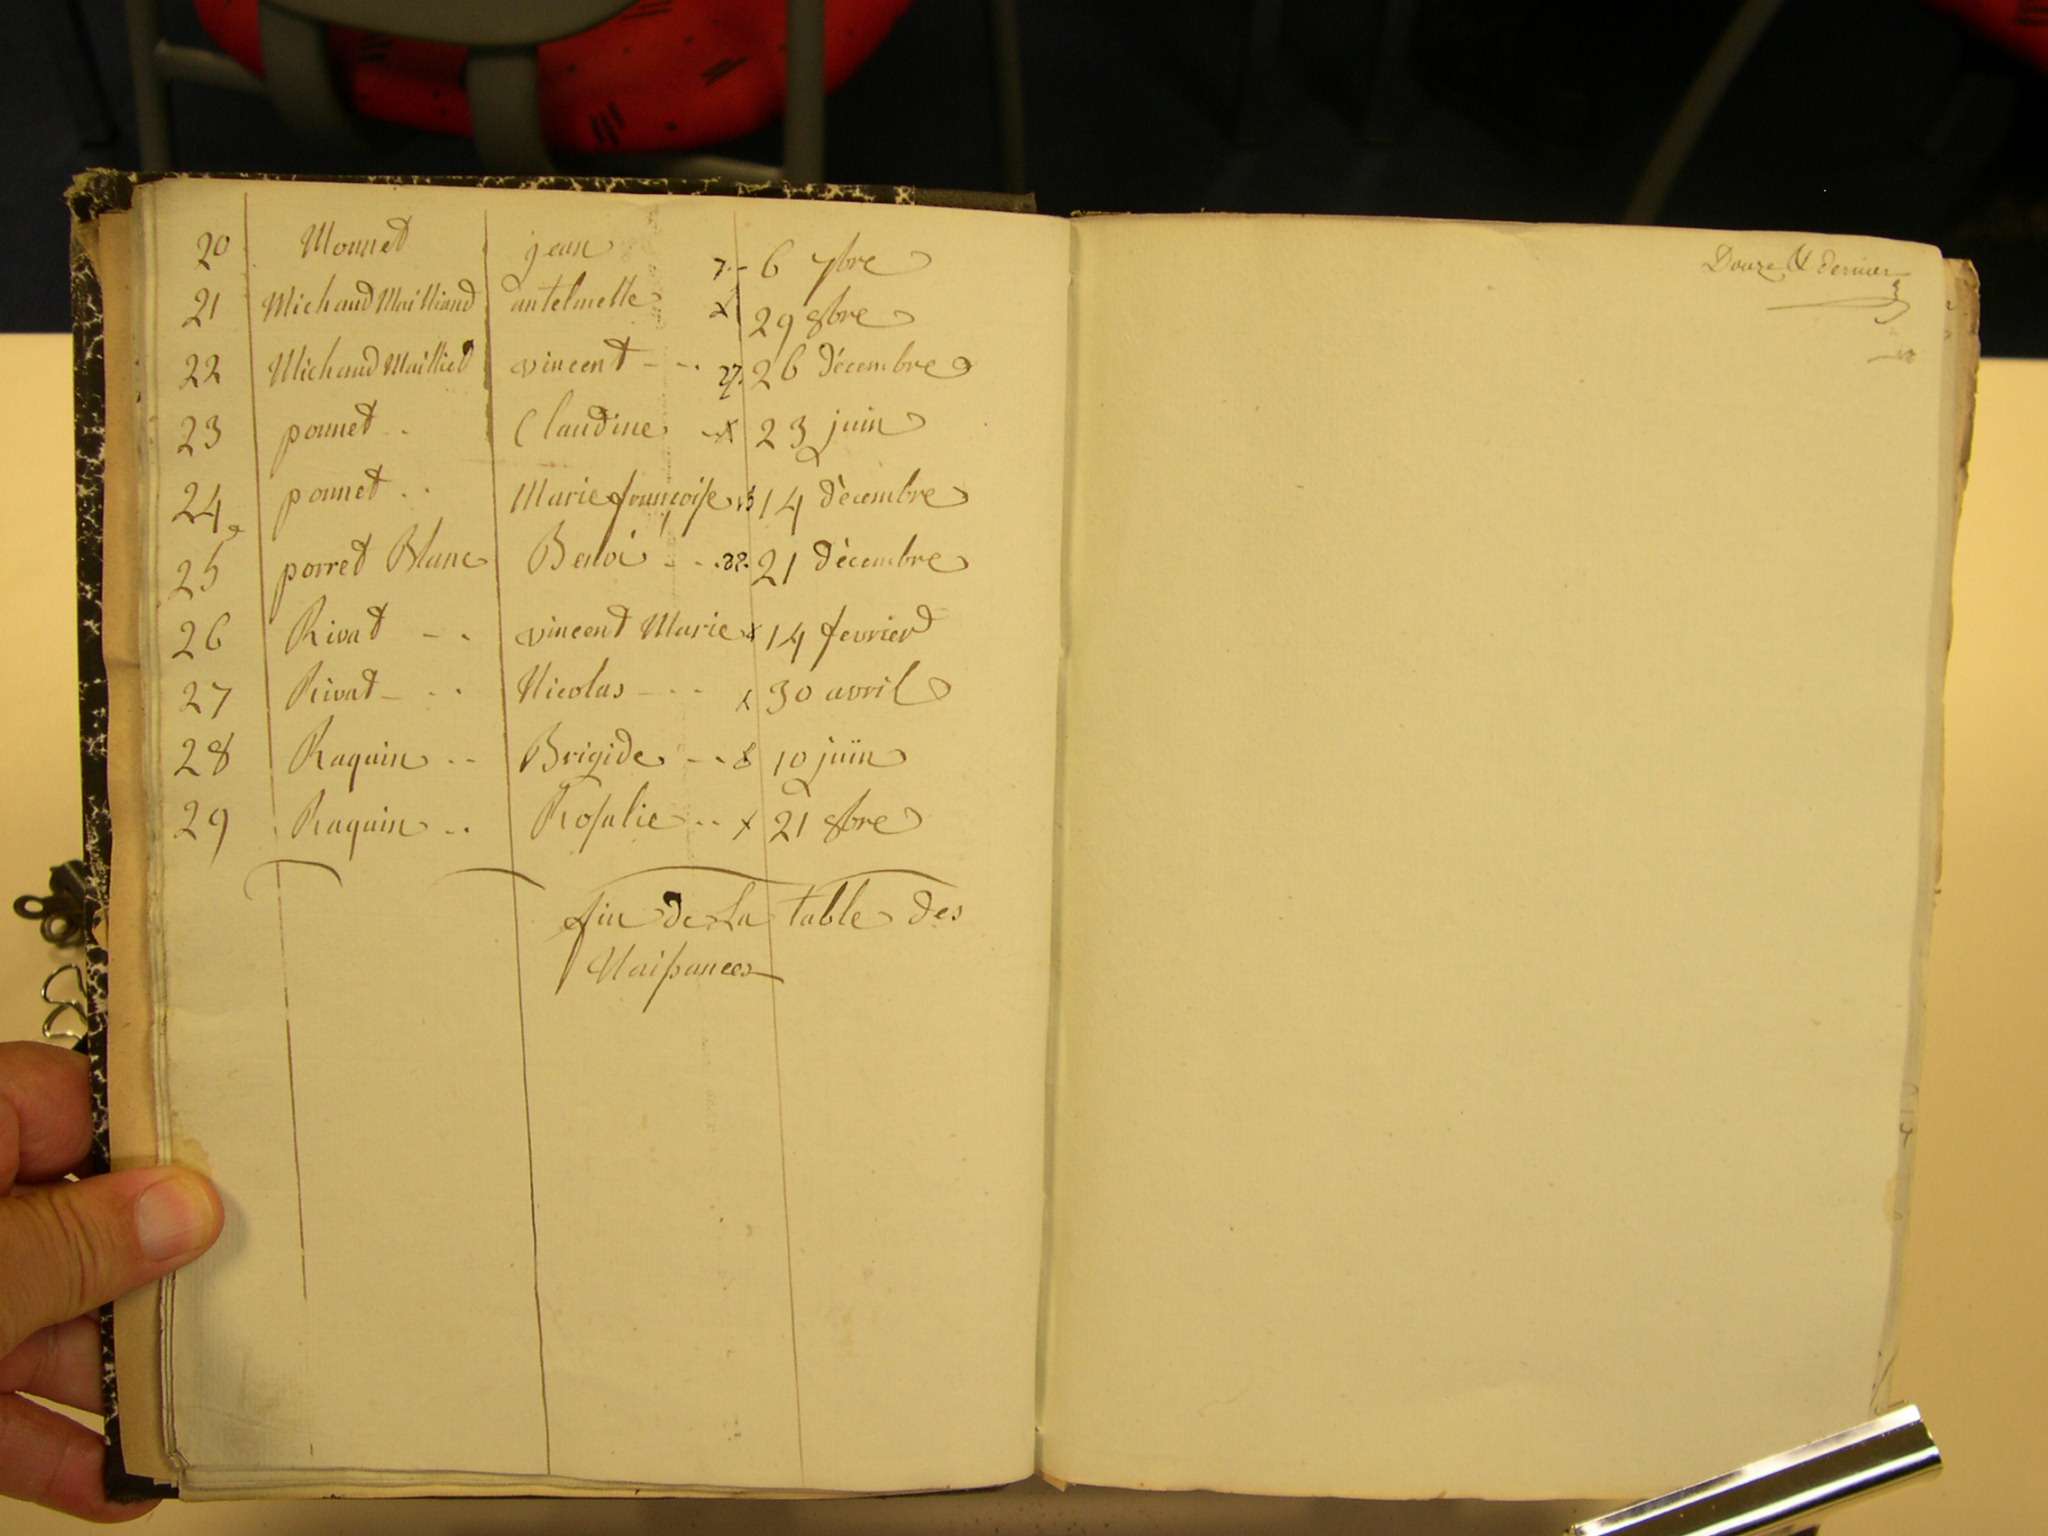 20 Monnet jean 7 6 7bre
21 Michaud Mailliand antelmette x 29 8bre
22 Michaud Mailliet vincent 27 26 décembre
23 ponnet Claudine x 23 juin
24 ponnet Marie françoise 14 décembre
25 porret Blanc Benoi 22 21 décembre
26 Rivat vincent Marie x 14 fevrier
27 Rivat Nicolas x 30 avril
28 Raquin Brigide 10 juin
29 Raquin Rosalie x 21 8bre
fin de La table des
Naissances
Douze & dernier